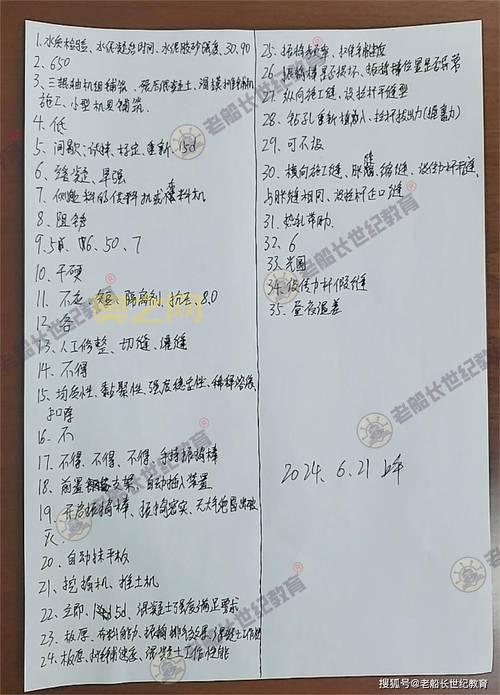 1.水质检验、水泥凝结时间、水泥胶砂强度、30.90
2.650
3.三辊轴机组铺筑、碾压混凝土、滑模摊铺机
施工、小型机具铺筑.
4.低
5.间歇；试拌、标定、重新、15d
6.缓凝、早强
7.侧向上料的供料机或 料机
8.阻锈
9.5 、 6、50、7
10.干硬
11.不应 隔离剂、抗压、8.0
12.各
13.人工修整、切缝、灌缝
14.不得
15.均质性、黏聚性、强度稳定性、
16.不
17.不得、不得、不得、手持振捣棒
18.前置 支架、自动插入装置
19.开启振捣棒、振捣密实、无大气泡冒出破
灭.
20.自动抹平板
21.挖掘机、推土机
22.立即、 5d、混凝土强度满足要求
23.板厚、布料能力、振捣排气效果、混凝土工作性
24.板厚、摊铺速度、混凝土工作性能
25.振捣频率、拉锤铺速度
26.振捣棒是否损坏、振捣棒位置是否异常
27.纵向施工缝、设拉杆平缝型
28.钻孔重新植入、拉杆拔出力
29.可不设
30.横向施工缝、胀缝、缩缝、设传力杆平缝、
与胀缝相同、设拉杆企口缝
31.热轧带肋
32.6
33.光圆
34.设传力杆假缝
35.昼夜温差
2024、6.21上午
老船长世纪教育
搜狐号@老船长世纪教育